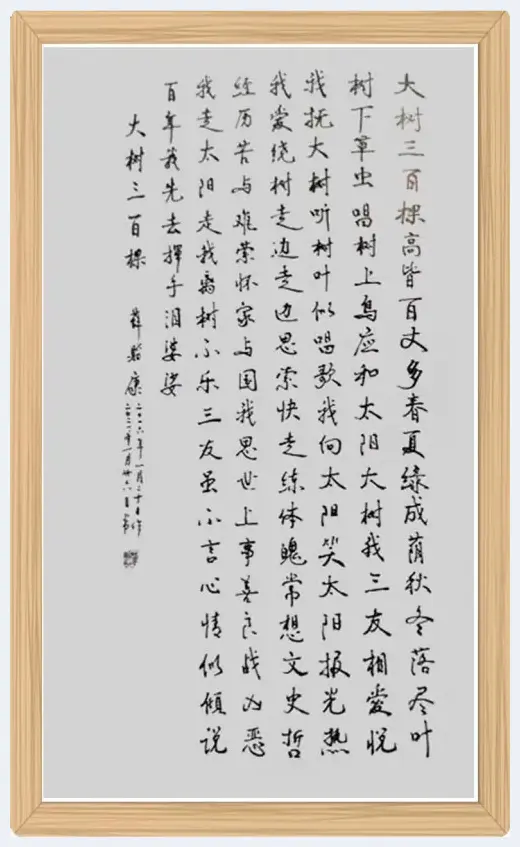 大树三百棵高皆百丈多春夏绿成荫秋冬落尽叶
树下草虫唱树上鸟应和太阳大树我三友相爱悦
我抚大树听树叶似唱歌我向太阳笑太阳报光热
我爱绕树走边走边思索快走练体魄常想文史哲
经历苦与难萦怀家与国我思世上事善良战凶恶
我走太阳走我离树不乐三友虽不言心情似倾说
百年我先去挥手泪婆娑
大树三百棵 薛 康